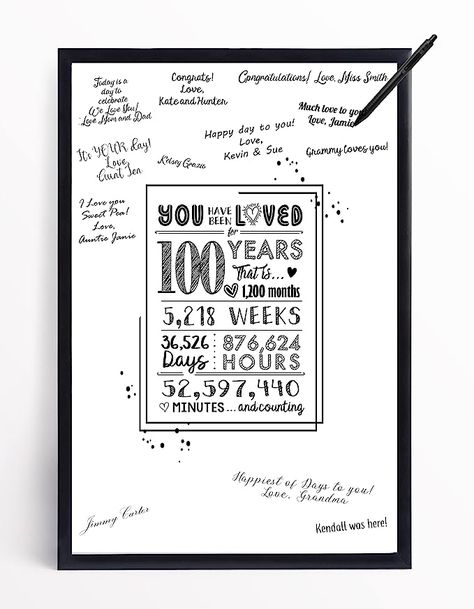 Today is a
day to
celebrate
We Love You!
Love Mom and Dad
Congrats!
Love,
Kate and Hunter
Congratulations! Love, Miss Smith
Much love to you
Love, Jamie
It's YOUR day!
Love,
Aunt Jen
Kelsey Grazie
Happy day to you!
Love,
Kevin & Sue
Grammy loves you!
I Love you
Sweet Pea!
Love,
Auntie Janie
YOU HAVE BEEN LOVED
for
100 YEARS
That is...
1,200 months
5,218 WEEKS
36,526 Days
876,624 HOURS
52,597,440
MINUTES ... and counting
Happiest of Days to you!
Love, Grandma
Jimmy Carter
Kendall was here!